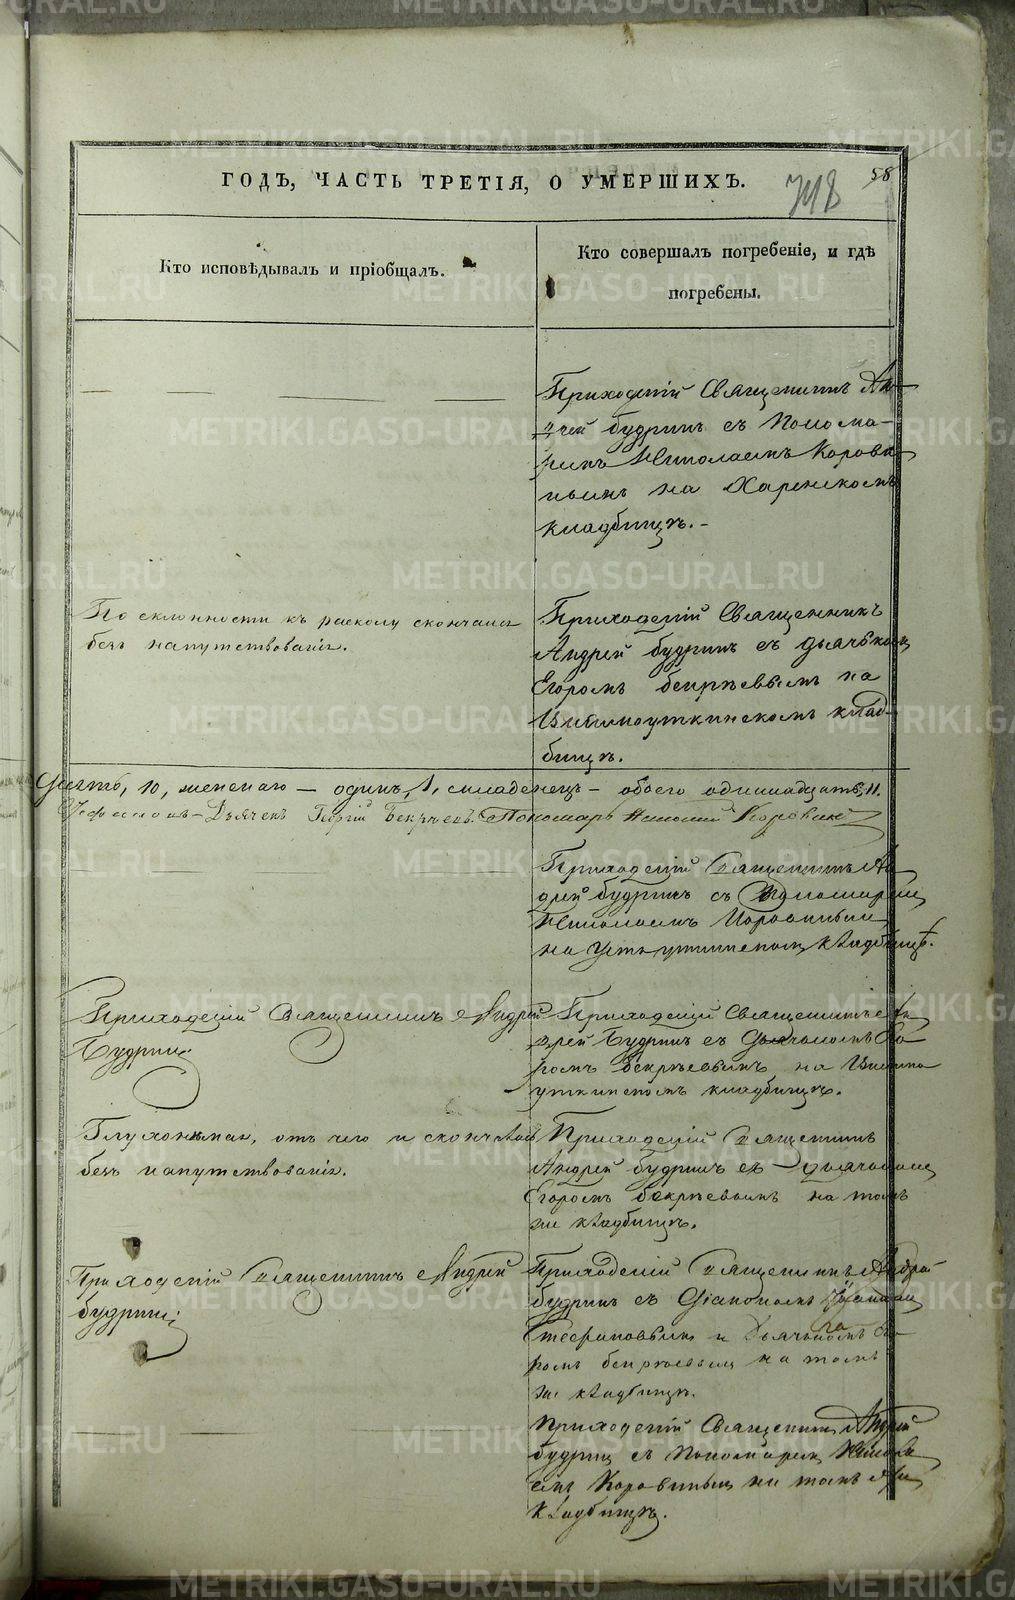 58
718
ГОДЪ, ЧАСТЬ ТРЕТІЯ, О УМЕРШИХЪ.
Кто исповѣдывалъ и пріобщалъ.
Кто совершалъ погребеніе, и гдѣ
погребены.
Приходскій Священникъ Ан-
дрей Будринъ съ Понома-
ремъ Николаемъ Корови-
нымъ на Харенскомъ
кладбищѣ.-
По склонности къ расколу скончался
безъ напутствованія.
Приходскій Священникъ
Андрей Будринъ съ дьячкомъ
Егоромъ Бекрѣевымъ на
кладбищѣ.
10, женскаго – одинъ, 1, младенецъ – обоего одиннадцать, 11.
Дьячекъ Георгій Бекрѣевъ. Пономарь Николай Коровинъ
Приходскій Священникъ Ан-
дрей Будринъ съ Пономаремъ
Николаемъ Коровинымъ
на Усть-уткинскомъ кладбищѣ.
Приходскій Священникъ Андрей
Будринъ
Приходскій Священникъ Ан-
дрей Будринъ съ Дьячкомъ Его-
ромъ Бекрѣевымъ на
уткинскомъ кладбищѣ.
Глухонѣмая, отъ чего и скончалась
безъ напутствованія.
Приходскій Священникъ
Андрей Будринъ съ Дьячкомъ
Егоромъ Бекрѣевымъ на томъ
же кладбищѣ.
Приходскій Священникъ Андрей
Будринъ
Приходскій Священникъ Андрей
Будринъ съ Діакономъ
Стефановымъ и Дьячкомъ Его-
ромъ Бекрѣевымъ на томъ
же кладбищѣ.
Приходскій Священникъ Андрей
Будринъ съ Пономаремъ Никола-
емъ Коровинымъ на томъ же
кладбищѣ.
METRIKI.GASO-URAL.RU